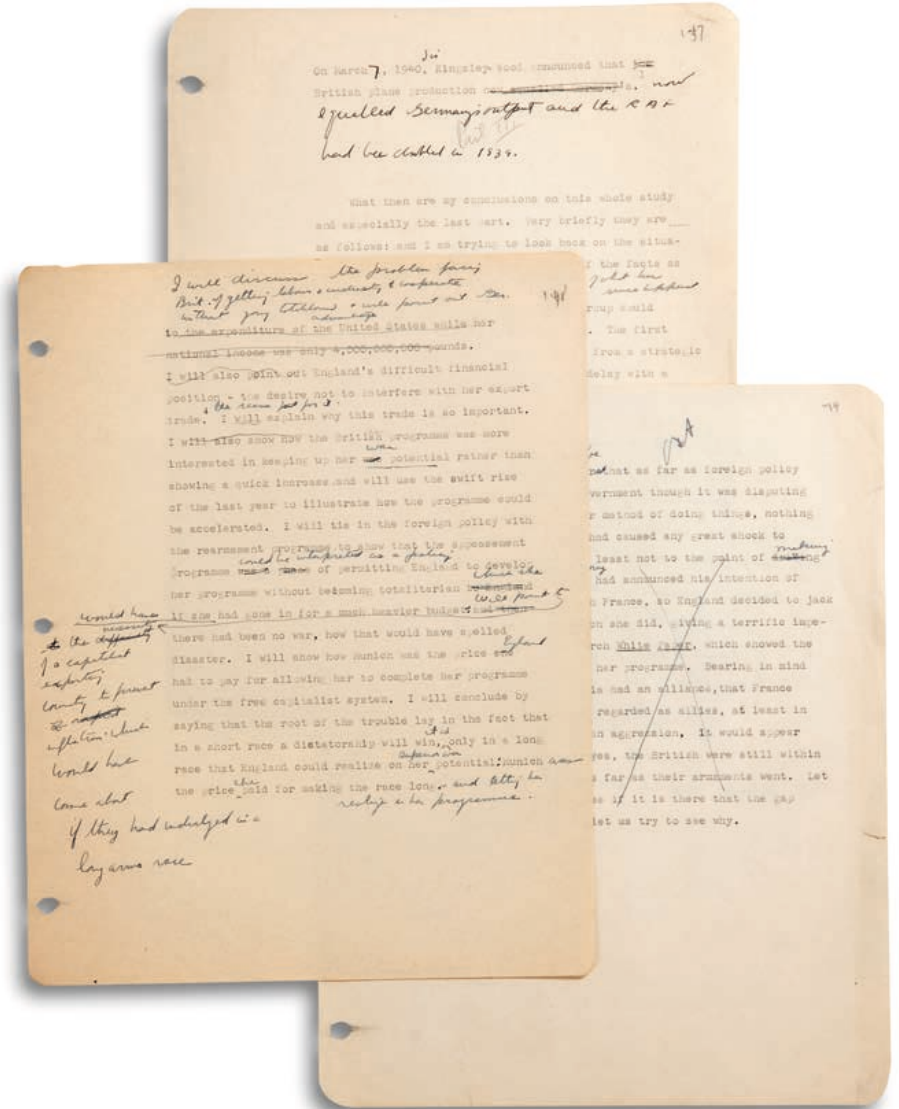 147
Sir
On March 7, 1940, Kingsley Wood announced that
British plane production now
equalled Germany's output and the RAF
had been doubled in 1939.
What then are my conclusions on this whole study
and especially the last part. Very briefly they are
as follows: and I am trying to look back on the situa-
f the facts as
what has
since happened
roup would
. The first
from a strategic
delay with a
I will discuss the problem facing
Brit. of getting labour + industry to cooperate
without going totalitarian + will point out Ger.
advantage
to the expenditure of the United States while her
national income was only 4,000,000,000 pounds.
I will also point out England's difficult financial
position - the desire not to interfere with her export
trade. I will explain why this trade is so important.
I will also show how the British programme was more
interested in keeping up her potential rather than
showing a quick increase and will use the swift rise
of the last year to illustrate how the programme could
be accelerated. I will tie in the foreign policy with
the rearmament programme to show that the appeasement
could be interpreted as a policy
programme of permitting England to develop
her programme without becoming totalitarian
since she
will point to
if she had gone in for a much heavier budget and then
there had been no war, how that would have spelled
England
disaster. I will show how Munich was the price
had to pay for allowing her to complete her programme
under the free capitalist system. I will conclude by
saying that the root of the trouble lay in the fact that
in a short race a dictatorship will win, only in a long
it is
race that England could realize on her potential: Munich was
superior
the price she paid for making the race long, and letting her
realize on her programme.
would have
the
of a capitalist
exporting
country to prevent
inflation which
would have
come about
if they had indulged in a
long arms race
that as far as foreign policy
vernment though it was disputing
r method of doing things, nothing
had caused any great shock to
least not to the point of making
had announced his intention of
France, so England decided to jack
ch she did, giving a terrific impe-
rch White Paper, which showed the
her programme. Bearing in mind
ia had an alliance, that France
regarded as allies, at least in
an aggression. It would appear
res, the British were still within
s far as their armaments went. Let
se if it is there that the gap
let us try to see why.